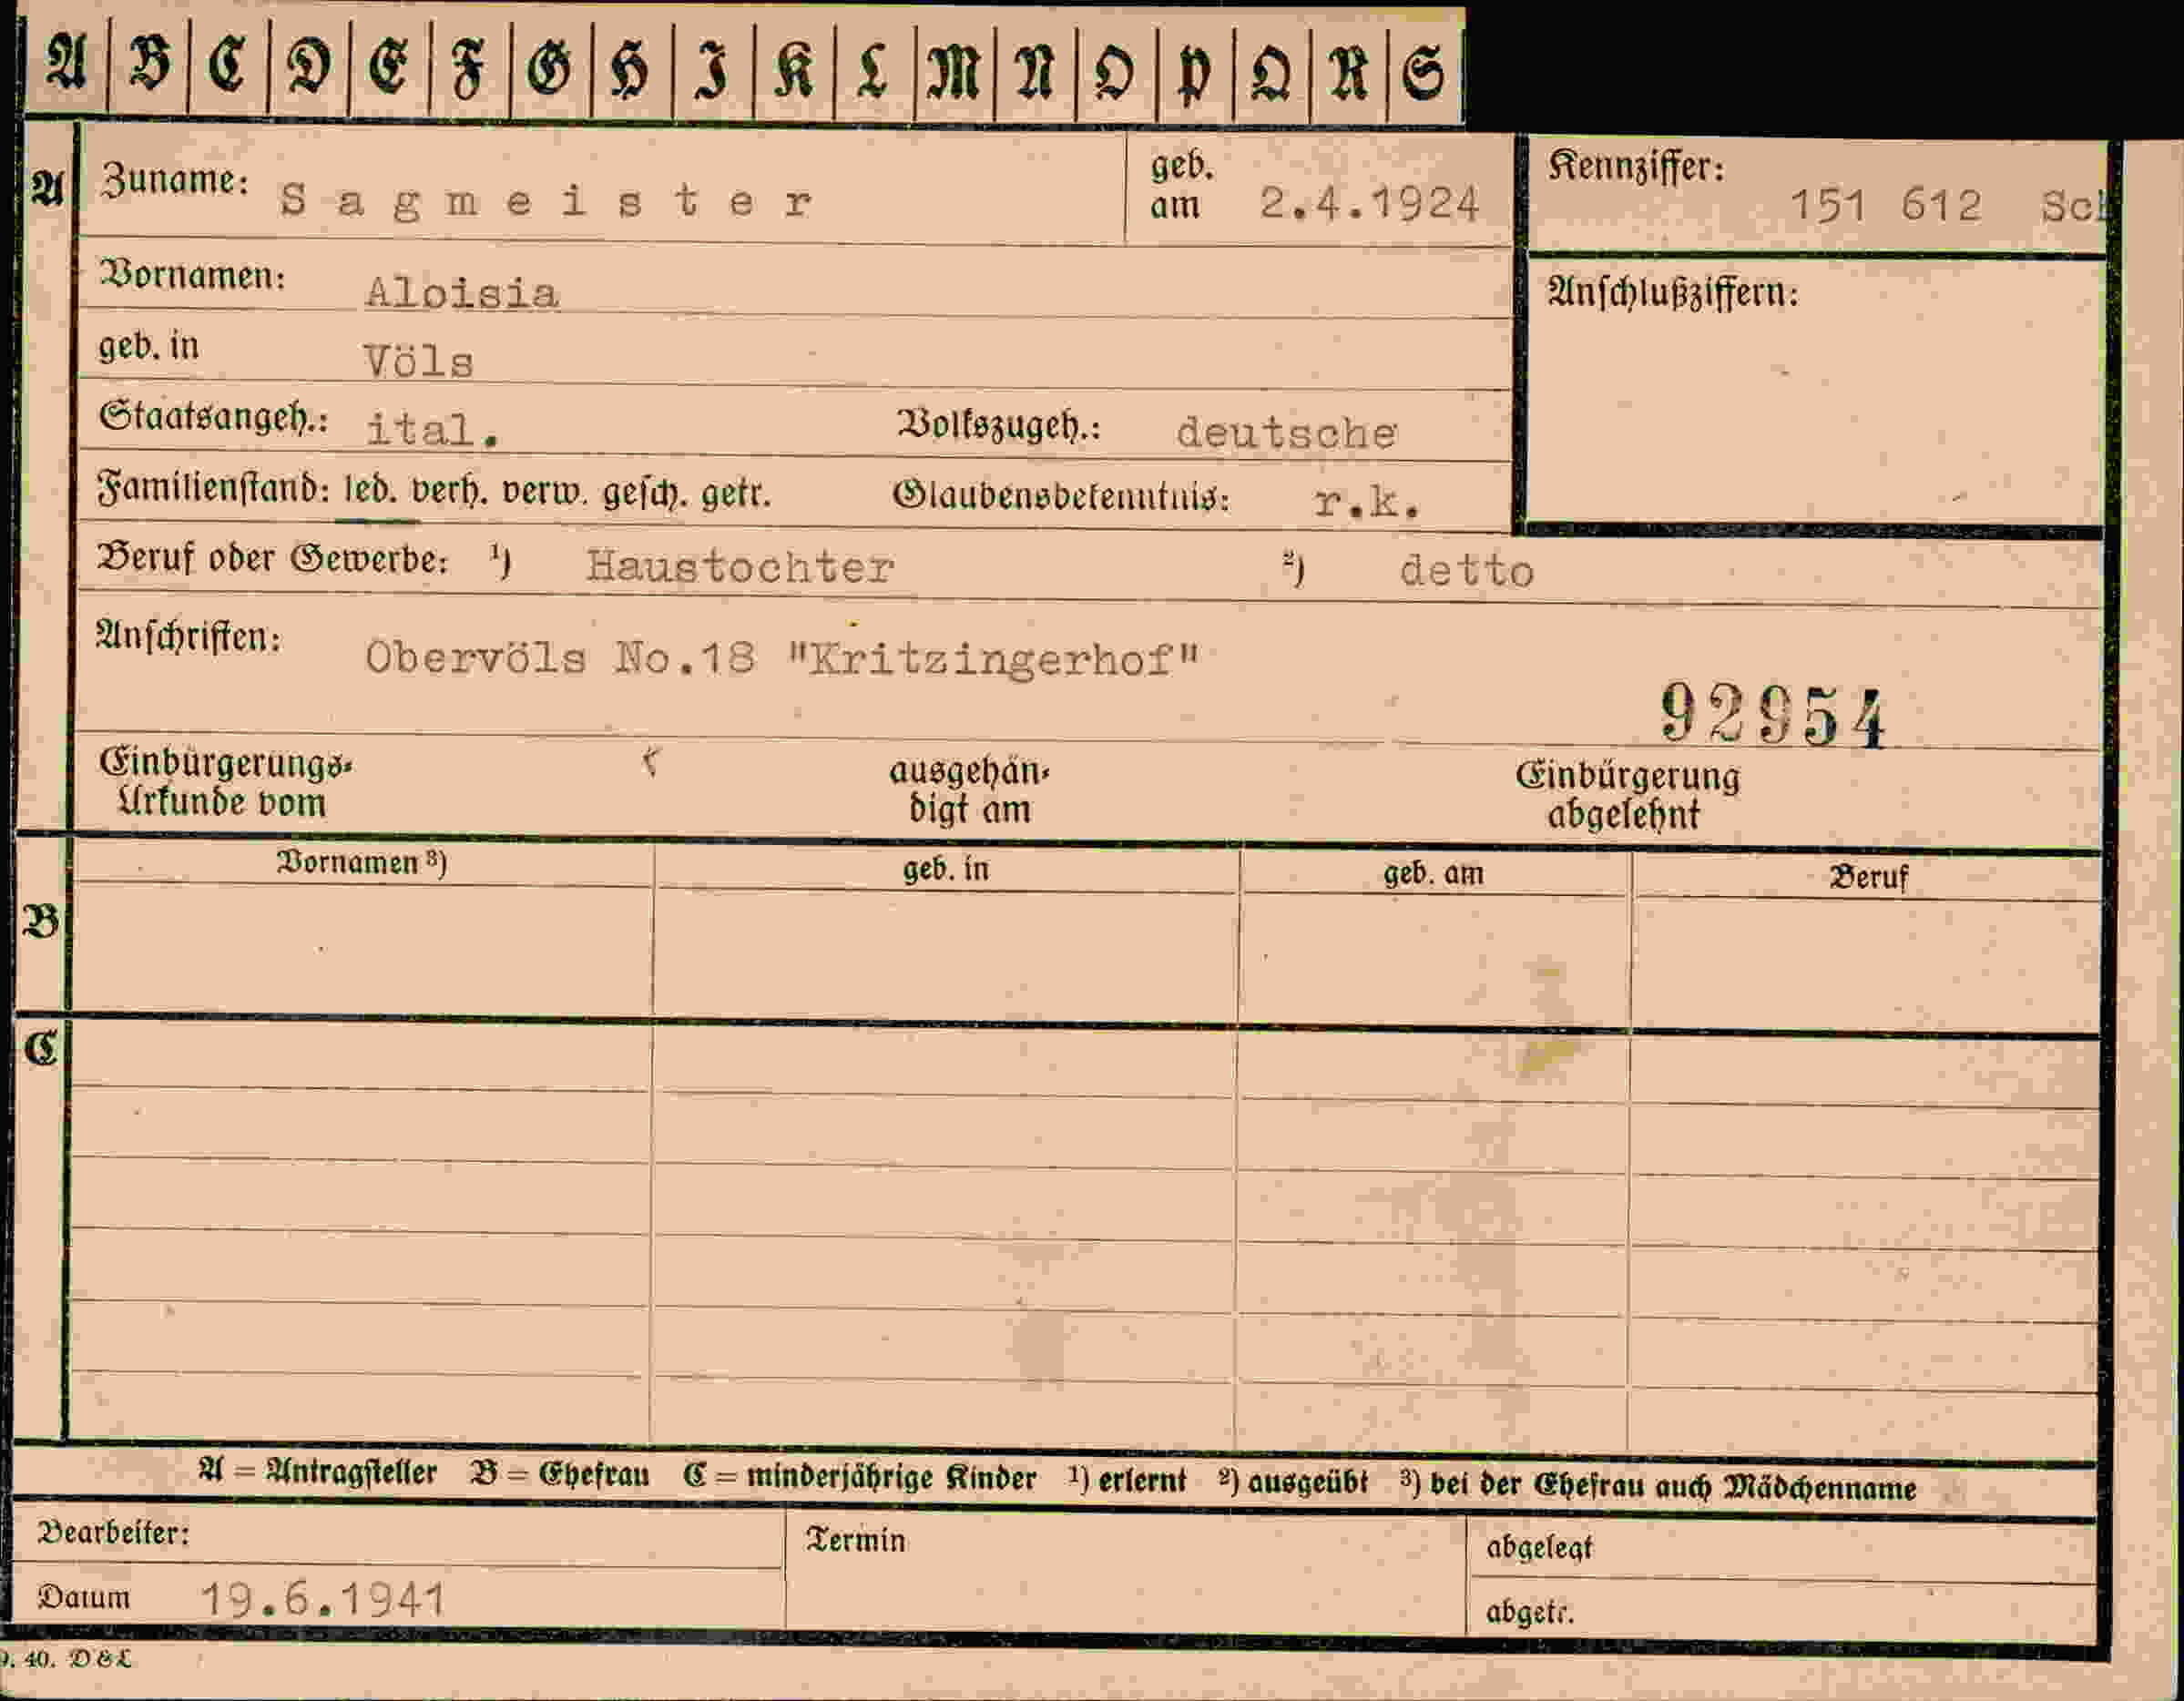 A B C D E F G H I K L M N O P Q R S
A Zuname: Sagmeister geb. am 2.4.1924 Kennziffer: 151 612 Sch
Vornamen: Aloisia Anschlußziffern:
geb. in Völs
Staatsangeh.: ital. Volkszugeh.: deutsche
Familienstand: led. verh. verw. gesch. getr. Glaubensbekenntnis: r.k.
Beruf oder Gewerbe: ¹) Haustochter ²) detto
Anschriften: Obervöls No.18 "Kritzingerhof"
92954
Einbürgerungs- ausgehän- Einbürgerung
Urkunde vom digt am abgelehnt
Vornamen ³) geb. in geb. am Beruf
B
C
A = Antragsteller B = Ehefrau C = minderjährige Kinder ¹) erlernt ²) ausgeübt ³) bei der Ehefrau auch Mädchenname
Bearbeiter: Termin abgelegt
Datum 19.6.1941 abgetr.
40. D&L